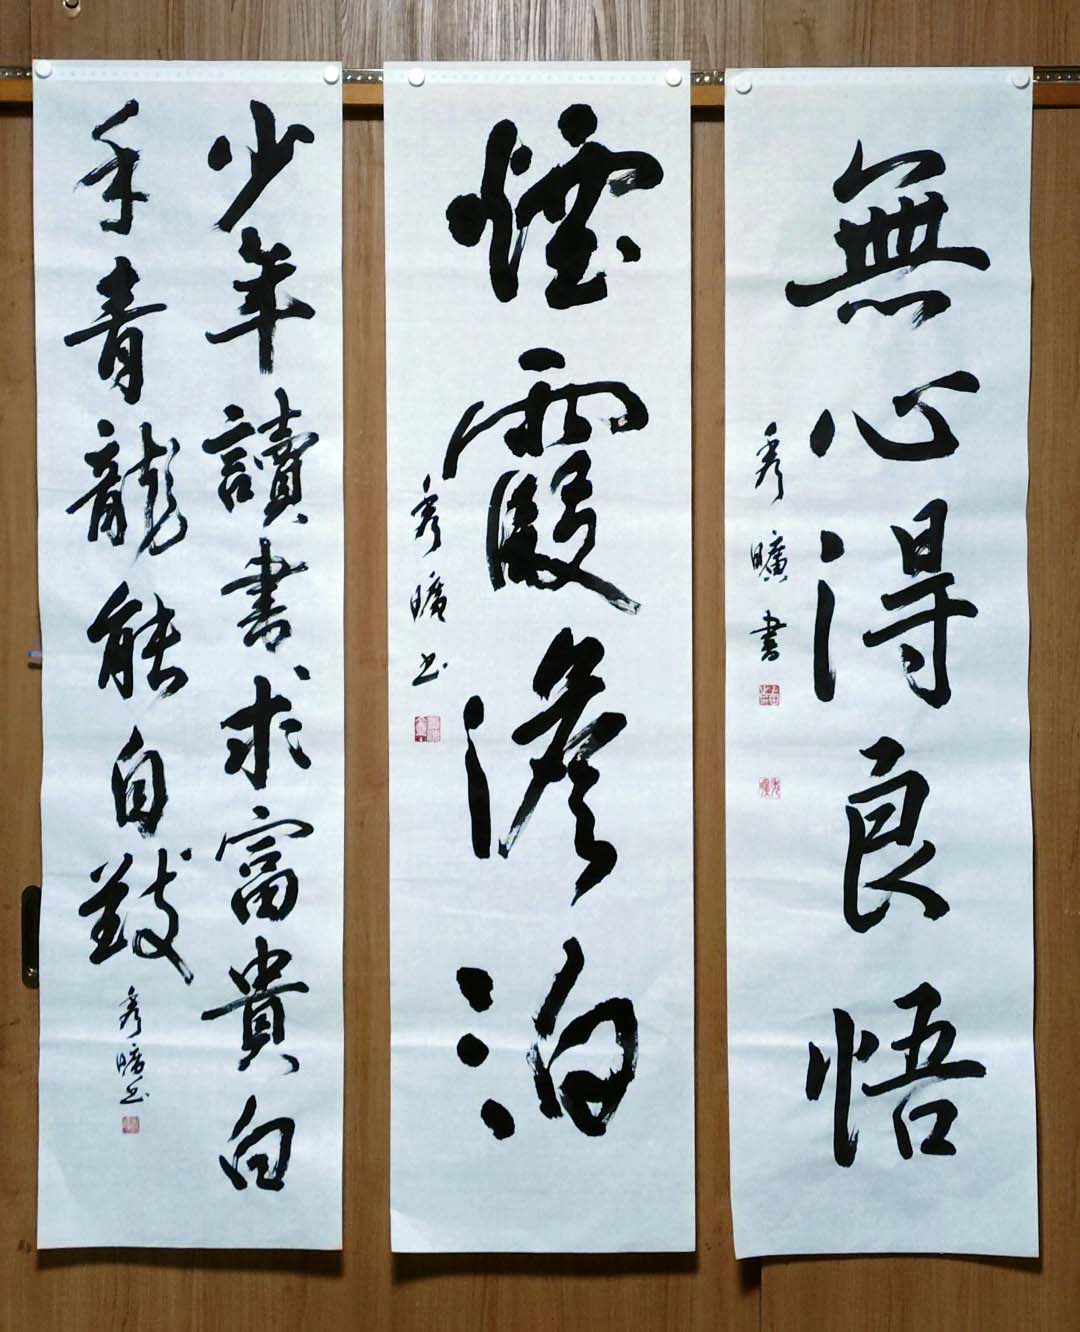 無心得良悟
秀曠書
煙霞澹泊
秀曠书
少年讀書求富貴白
手青龍能自致
秀曠书